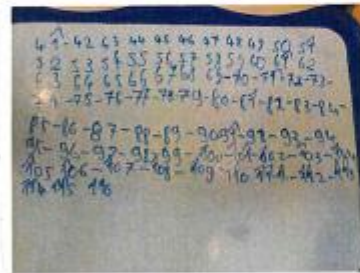 41-42 43 44 45 46 47 48 49 50 51
52 53 54 55 56 57 58 59 60 61 62
63 64 65 66 67 68 69-70-71-72-73-
74-75-76-77-78-79-80-81-82-83-84-
85-86-87-88-89-90 91-92-93-94
95-96-97-98 99-100-101-102-103-104
105 106-107-108-109 110 111-112-113
114 115 116